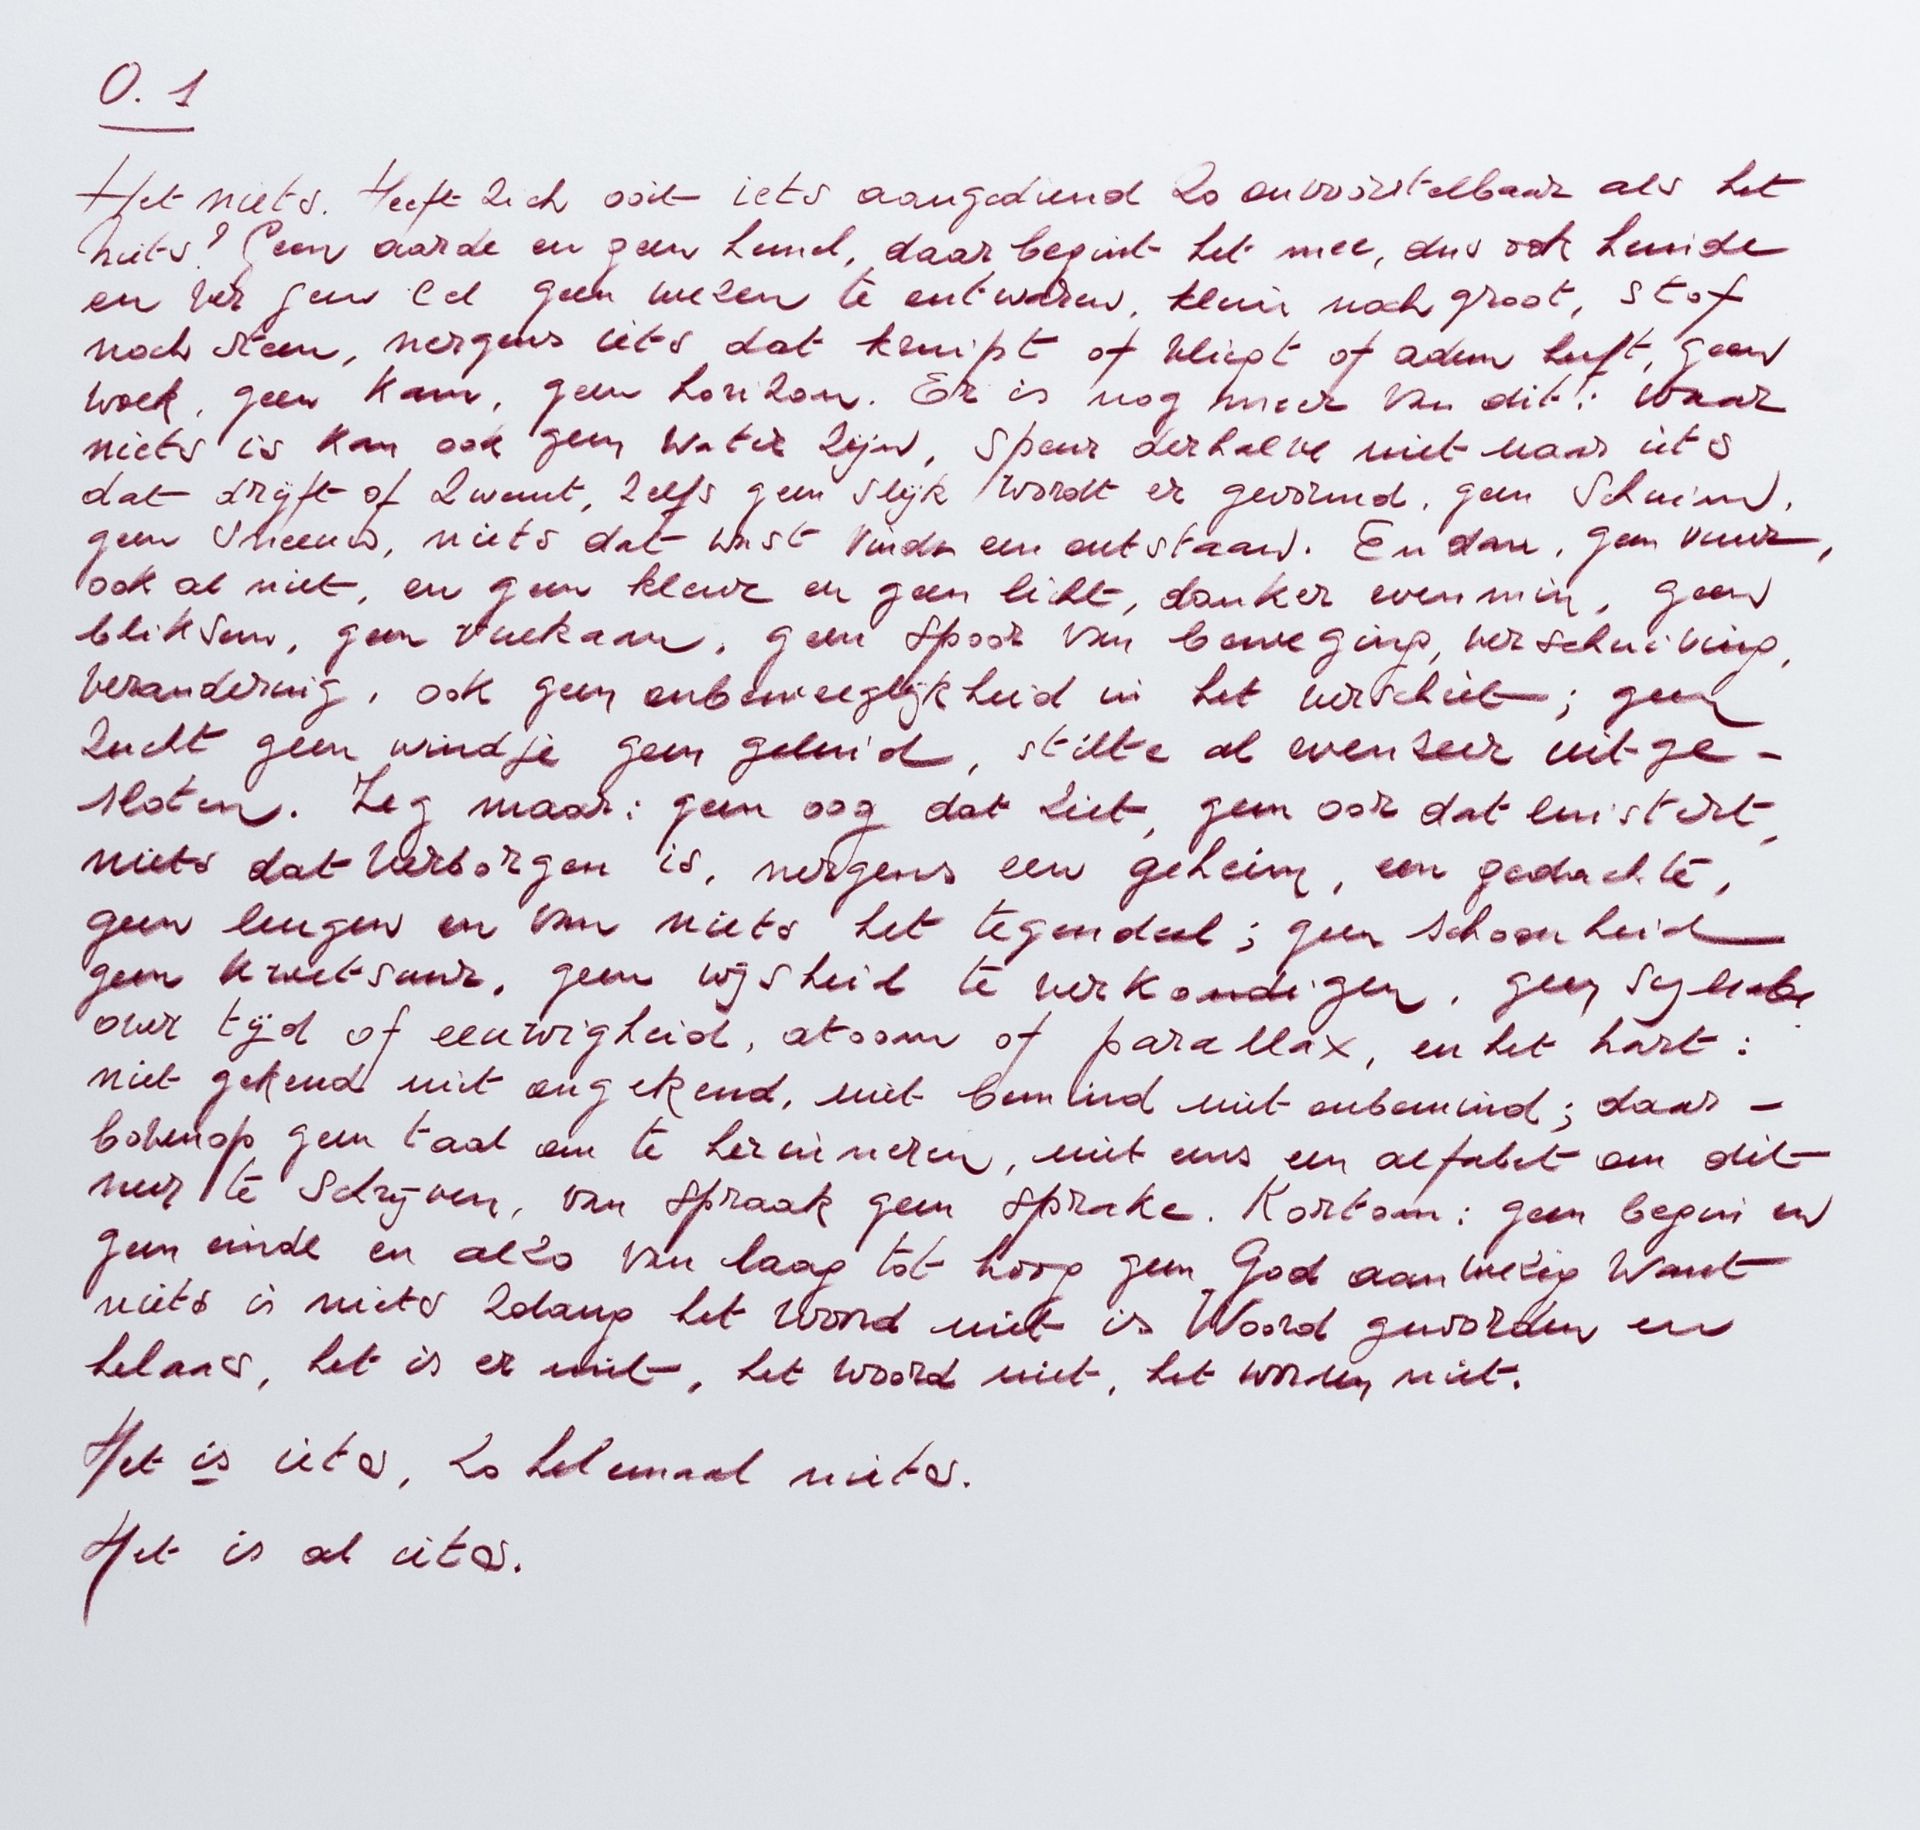 0.1
Het niets. Heeft zich ooit iets aangediend zo onvoorstelbaar als het
niets? Geen aarde en geen hemel, daar begint het mee, dus ook heinde
en ver geen cel geen wezen te ontwaren, klein noch groot, stof
noch steen, nergens iets dat kruipt of vliegt of adem heeft, geen
wolk, geen kam, geen horizon. Er is nog meer van dit: waar
niets is kan ook geen water zijn, speur derhalve niet naar iets
dat drijft of zwemt, zelfs geen slijk wordt er gevormd, geen schuim,
geen sneeuw, niets dat wast vindt een ontstaan. En dan, geen vuur,
ook al niet, en geen kleur en geen licht, donker evenmin, geen
bliksem, geen vulkaan, geen spoor van beweging, verschuiving,
verandering, ook geen onbeweeglijkheid in het verschiet; geen
zucht geen windje geen geluid, stilte al evenzeer uitge-
sloten. Zeg maar: geen oog dat ziet, geen oor dat luistert,
niets dat verborgen is, nergens een geheim, een gedachte,
geen leugen en van niets het tegendeel; geen schoonheid
geen kwetsuur, geen wijsheid te verkondigen, geen syllabe
over tijd of eeuwigheid, atoom of parallax, en het hart:
niet gekend niet ongekend, niet bemind niet onbemind; daar-
bovenop geen taal om te herinneren, niet eens een alfabet om dit
neer te schrijven, van spraak geen sprake. Kortom: geen begin en
geen einde en alzo van laag tot hoog geen God aanwezig want
niets is niets zolang het woord niet is Woord geworden en
helaas, het is er niet, het woord niet, het worden niet.
Het is iets, zo helemaal niets.
Het is al iets.